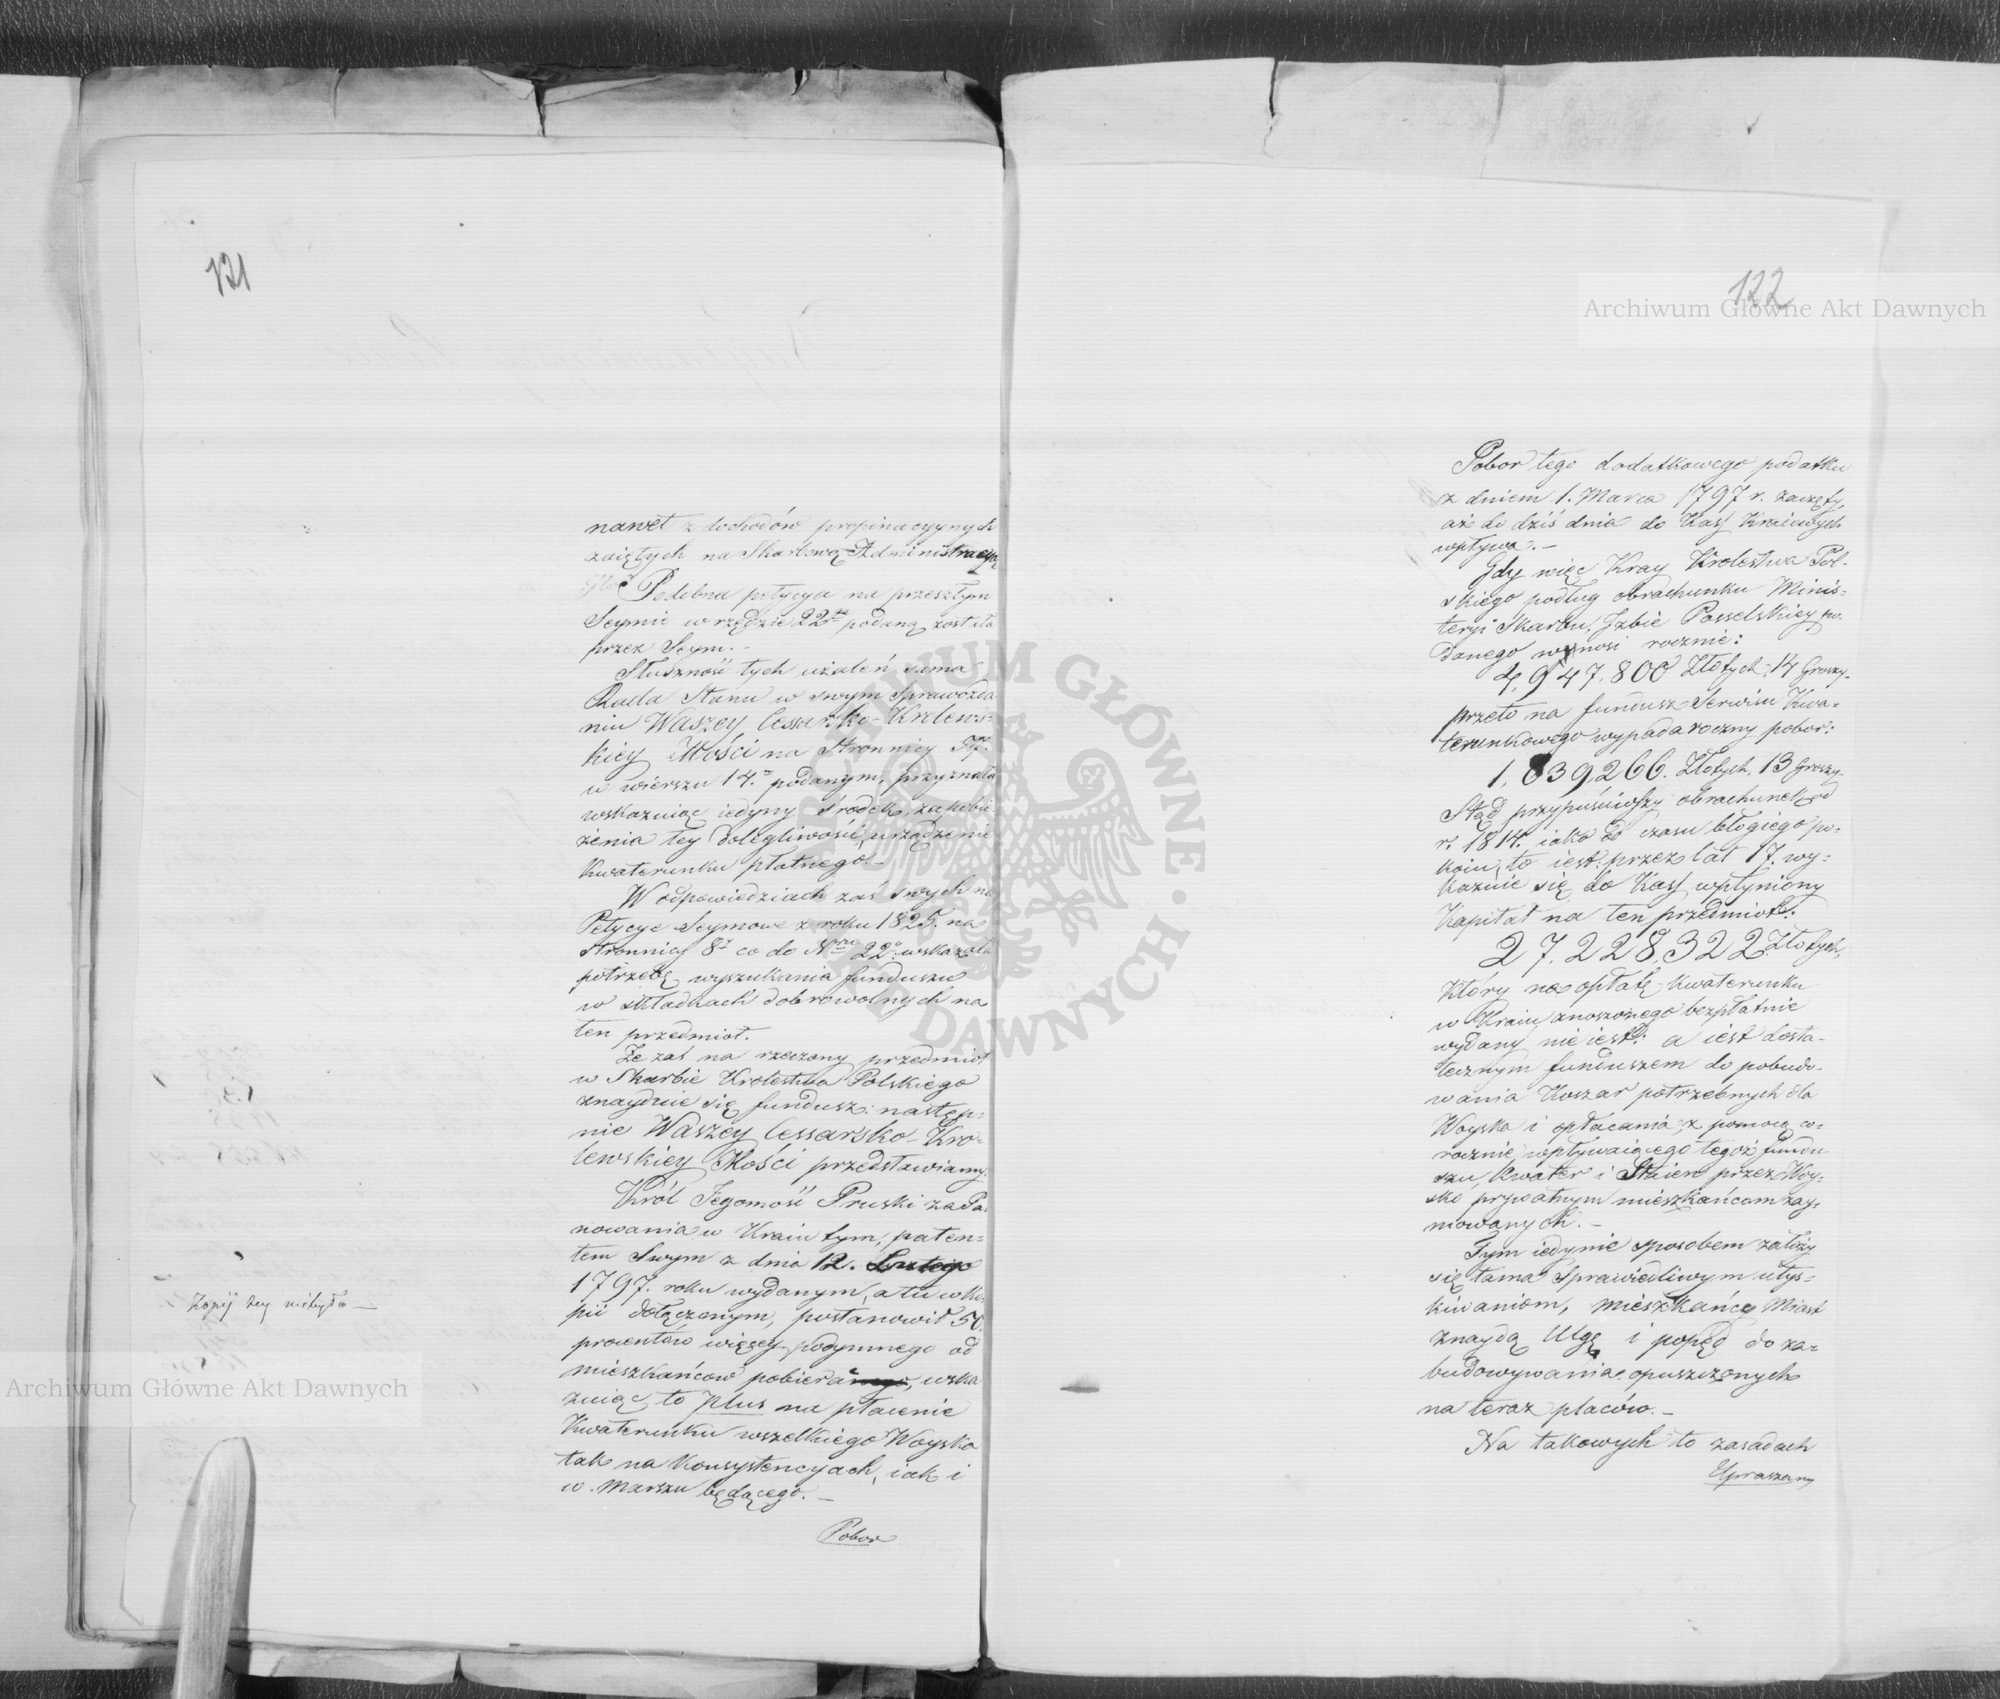 121
nawet z dochodów propinacyynych
zaiętych na Skarbową Administracyą
Podobna petycya na przeszłym
Seymie w rzędzie 22m podaną została
przez Seym.-
Słuszność tych użaleń sama
Rada Stanu w swym Sprawozda
niu Waszey Cesarsko-Krolews-
kiey Mości na Stronnicy
w wierszu 14. podanym, przyznała
wskazuiąc iedyny środek, zapobie
żenia tey dolegliwości, urządzenie
Kwaterunku płatnego.-
W odpowiedziach zaś swych na
Petycye Seymowe z roku 1825. na
Stronnicy 8 co do Nru 22 wskazała
potrzebę wyszukania funduszu
w składkach dobrowolnych na
ten przedmiot.
Że zaś na rzeczony przedmiot
w Skarbie Krolestwa Polskiego
znayduie się fundusz: następ-
nie Waszey Cessarsko-Kro-
lewskiey Mości przedstawiamy.
Król Jegomość Pruski za Pa
nowania w Kraiu tym, paten-
tem Swym z dnia 12. Lutego
1797. roku wydanym, a tu w Ko
pii dołączonym, postanowił 50.
procentów więcey podymnego od
mieszkańców pobierać, wska
zuiąc to plus na płacenie
Kwaterunku wszelkiego Woyska
tak na Konsystencyach, iak i
w marszu będącego.-
Pobor
Kopij tey niebyło —
122
Pobor tego dodatkowego podatku
z dniem 1. Marca 1797 r. zaczęty,
aż do dziś dnia do Kass Kraiowych
wpływa.-
Gdy więc Kray Krolestwa Pol-
skiego podług obrachunku Minis-
teryi Skarbu, Izbie Posselskiey po-
danego wynosi rocznie:
4,947,800 Złotych 14 Groszy-
przeto na fundusz Serwisu Kwa-
terunkowego wypada roczny pobor:
1,839,266. Złotych, 13 Groszy-
Stąd przypuściwszy obrachunek od
r. 1814. iako od czasu błogiego po-
koiu, to iest: przez lat 17. wy-
kazuie się do Kass wpłyniony
Kapitał na ten przedmiot:
27,228,322 Złotych,
który na opłatę Kwaterunku
w Kraiu znoszonego bezpłatnie
wydany nie iest: a iest dosta-
tecznym funduszem do pobudo-
wania Koszar potrzebnych dla
Woyska i opłacania, z pomocą co-
rocznie wpływaiącego tegoż fundu-
szu, Kwater i Staien przez Woy-
sko prywatnym mieszkańcom zay-
mowanych.-
Tym iedynie sposobem założy
się tama Sprawiedliwym utys-
kiwaniom, mieszkańcy Miast
znaydą Ulgę i popęd do za-
budowywania opuszczonych
na teraz placów.-
Na takowych to zasadach
Upraszamy
Archiwum Główne Akt Dawnych
Archiwum Główne Akt Dawnych
ARCHIWUM GŁÓWNE · AKT DAWNYCH ·